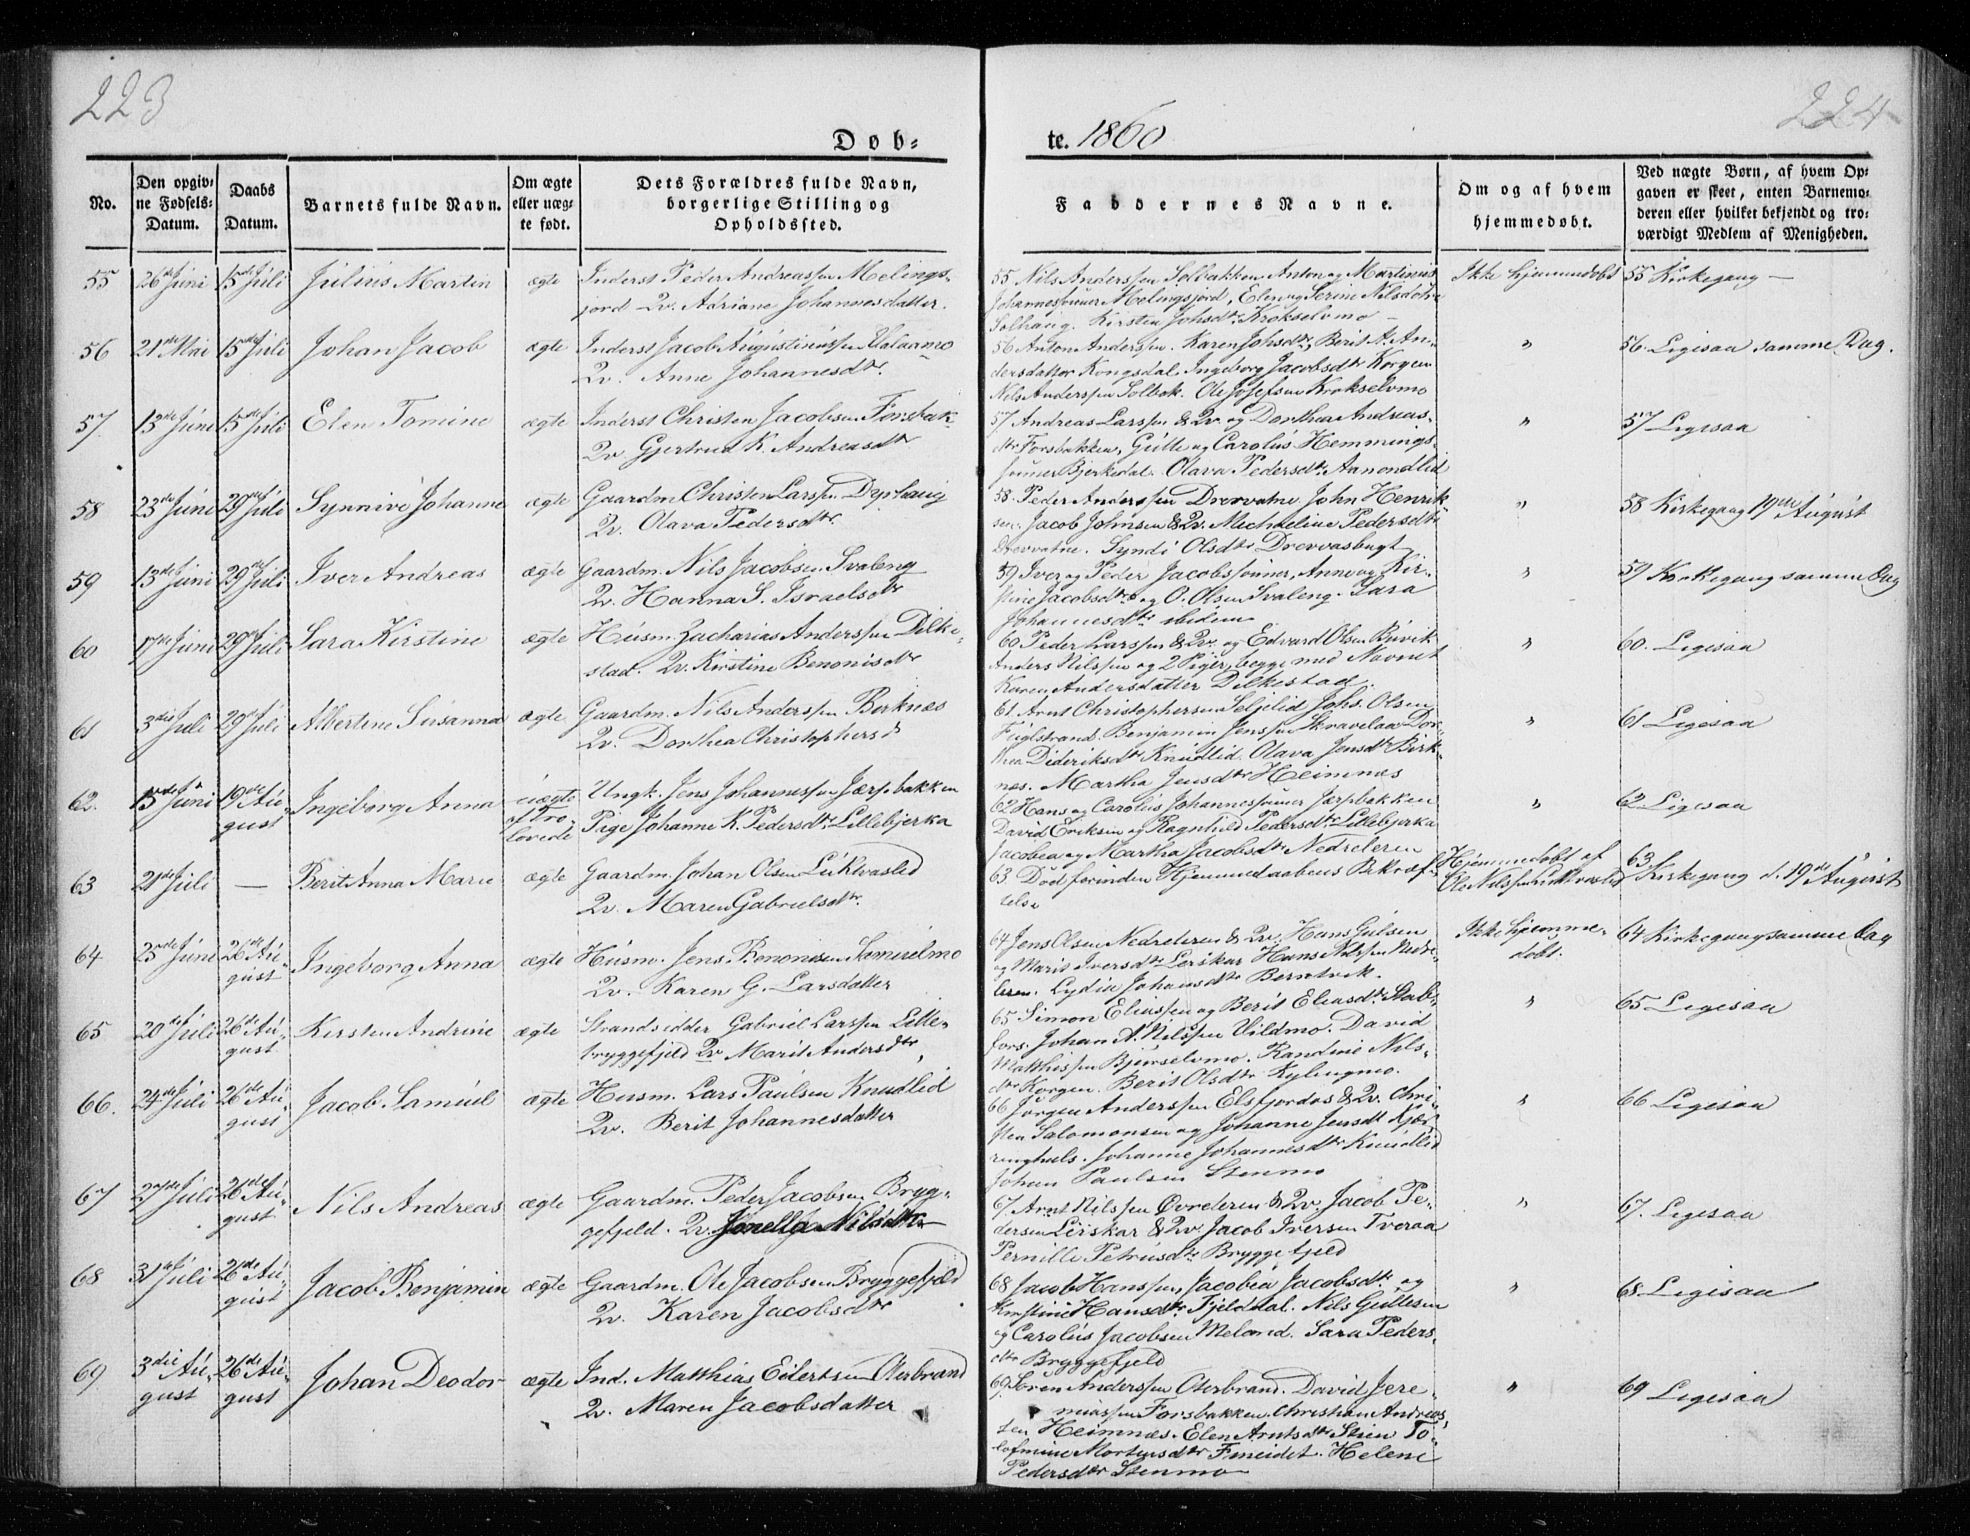 223
224
Døb-
te. 1860
No.
Den opgivne Fødsels-Datum.
Daabs Datum.
Barnets fulde Navn.
Om ægte eller uægte født.
Dets Forældres fulde Navn, borgerlige Stilling og Opholdssted.
Faddernes Navne.
Om og af hvem hjemmedøbt.
Ved uægte Børn, af hvem Opgaven er skeet, enten Barnemoderen eller hvilket bekjendt og troværdigt Medlem af Menigheden.
55 26de Juni 15de Juli Julius Martin ægte Inderst Peder Andreassen Melings-
jord Qv. Adriane Johannesdatter.
55 Nils Anderssen Solbakken Anton og Martinus
Johannessønner Melingsjord, Elen og Serine Nilsdøtre
Solhaug. Kirsten Johsdtr Krokselvmo
Ikke hjemmedøbt
55 Kirkegang
56 21de Mai 15de Juli Johan Jacob ægte Inderst Jacob Augustinussen
Qv. Anne Johannesdtr.
56 Anton Anderssen. Karen Johsdtr, Berit A. An-
dersdatter Kongsdal. Ingeborg Jacobsdtr Korgen
Nils Anderssen Solbak. Ole Josefsen Krokselvmo
"
56. Ligesaa samme Dag.
57. 13de Juni 15de Juli Elen Tomine ægte Inderst Christen Jacobsen Forsbak
Qv Gjertrud K. Andreasdtr
57 Andreas Larssen & Qv. og Dorthea Andreas-
dtr Forsbakken, Gulle og Carolus Hemmings-
sønner Bjerkedal. Olava Pedersdtr Aanondlid
"
57 Ligesaa
58 23de Juni 29de Juli Synnive Johanne ægte Gaardm Christen Larssen Dyrhaug
Qv. Olava Pedersdtr.
58. Peder Anderssen Drevvatne. John Henrik
sen. Jacob Johnsen & Qv. Michaeline Pedersdtr
Drevvatne. Olsdtr Drevvasbugt
"
58 Kirkegang 19de August
59 13de Juni 29de Juli Iver Andreas ægte Gaardm. Nils Jacobsen Svaleng
Qv. Hanna S. Israelsdtr
59 Iver og Peder Jacobssønner, Anne og Kir-
stine Jacobsdtr og O. Olsen Svaleng. Sara
Johannesdtr ibidem
"
59 Kirkegang samme Dag
60 17de Juni 29de Juli Sara Kirstine ægte Husm. Zacharias Anderssen Dilke-
stad. Qv. Kirstine Benonisdtr
60 Peder Larssen & Qv. og Edvard Olsen Buvik
Anders Nilssen og 2 Piger, begge med Navnet
Karen Andersdatter Dilkestad.
"
60. Ligesaa
61 3die Juli 29de Juli Albertine Susanna ægte Gaardm. Nils Anderssen Berknes
Qv. Dorthea Christophersd
61 Arnt Christophersen Seljelid Johs. Olsen
Fuglstrand. Benjamin Jenssen Skravelaa Dor-
thea Dideriksdtr Knudlid. Olava Jensdtr Birk-
nes. Martha Jensdtr Heimnes
"
61 Ligesaa
62. 15de Juni 19de Au-
gust Ingeborg Anna uægte
af Tro-
lovede Ungk. Jens Johannessen Jærpbakken
Pige Johanne K. Pedersdtr Lillebjerka
62 Hans og Carolus Johannessønner Jærpbakken
David Eriksen og Ragnhild Pedersdtr Lillebjerka
Jacobea og Martha Jacobsdtr Nedreleren
"
62 Ligesaa
63 21de Juli — Berit Anna Marie ægte Gaardm. Johan Olsen Luktvasled
Qv. Maren Gabrielsdtr.
63 Død forinden Hjemmedaabens Bekræf-
telse
Hjemmedøbt af
Ole Nilssen Luktvasled
63 Kirkegang d. 19de August
64 23de Juni 26de Au-
gust Ingeborg Anna ægte Husm. Jens Benonisen Samuelmo
Qv. Karen G. Larsdatter
64 Jens Olsen Nedreleren & Qv. Hans Gulsen
og Marit Iversdtr Lerskar Hans Nilssen Nedre-
leren. Lydia Johansdtr Berntvik.
Ikke hjemme-
døbt.
64 Kirkegang samme Dag
65 20de Juli 26de Au-
gust Kirsten Andrine ægte Strandsidder Gabriel Larssen Lille-
bryggefjeld Qv Marit Andersdtr
65 Simon Eliassen og Berit Eliasdtr Stab-
fors. Johan A. Nilssen Vildmo. David
Matthissen Bjurselvmo. Randine Nils-
dtr Korgen. Berit Olsdtr Kylingmo.
"
65 Ligesaa
66. 24de Juli 26de Au-
gust Jacob Samuel ægte Husm. Lars Paulsen Knudlid
Qv. Berit Johannesdatter
66 Jørgen Anderssen Elsfjordos & Qv. Chri-
sten Salomonsen og Johanne Jensdt Kjær-
ringhals. Johanne Johannesdtr Knudlid
Johan Paulsen Stenmo
"
66 Ligesaa
67 27de Juli 26de Au-
gust Nils Andreas ægte Gaardm. Peder Jacobsen Bryg-
gefjeld. Qv. Jonella Nilsdtr
67 Arnt Nilssen Øvreleren & Qv. Jacob Pe-
dersen Leirskar & Qv. Jacob Iversen Tveraa
Pernille Petrusdtr Bryggefjeld
"
67. Ligesaa
68 31te Juli 26de Au-
gust Jacob Benjamin ægte Gaardm. Ole Jacobsen Bryggefjeld
Qv. Karen Jacobsdtr
68 Jacob Hanssen, Jacobea Jacobsdtr og
Hansdtr Fjelddal. Nils Gullesen
og Carolus Jacobsen Meland. Sara Peders-
dtr Bryggefjeld
"
68. Ligesaa
69 3die Au-
gust 26de Au-
gust Johan Deodor ægte Ind. Matthias Eilertsen Oterbrand
Qv. Maren Jacobsdatter
69 Søren Anderssen Oterbrand. David Jere-
miassen Forsbakken. Christian Andreas-
sen Heimnes. Elen Arntsdtr
Mortensdtr Fineidet. Helene
Pedersdtr Stenmo
"
69 Ligesaa